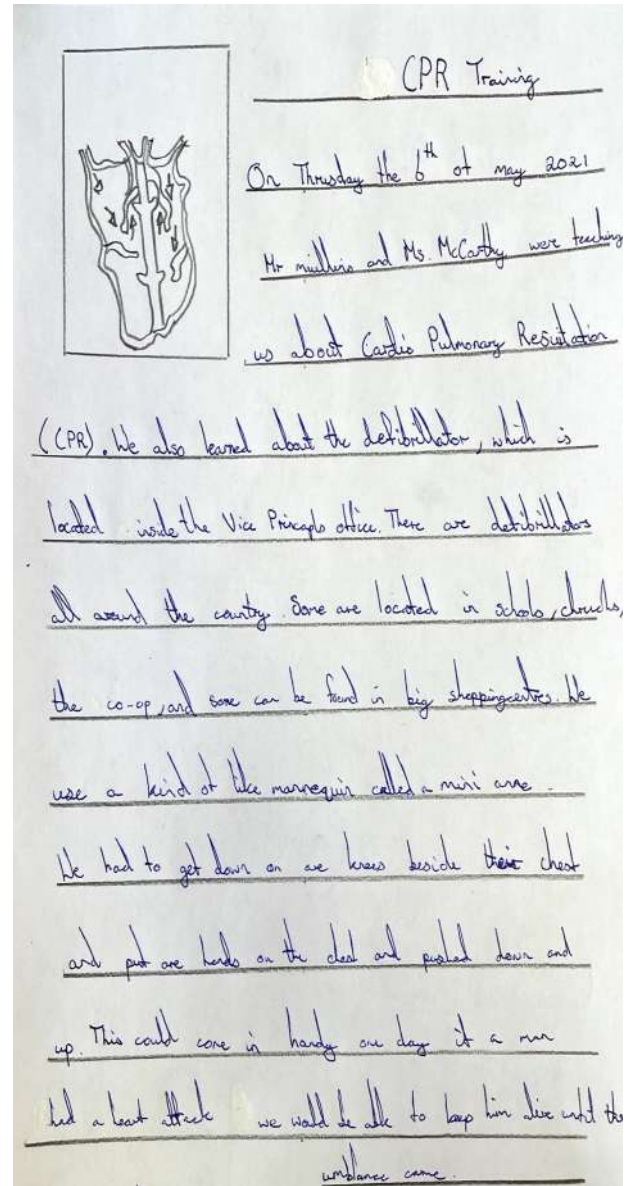 CPR Training
On Thrusday the 6th of may 2021
Mr mullins and Ms. McCarthy were teaching
us about Cardio Pulmonary Resistation
(CPR). We also learned about the defibrillator, which is
located inside the Vice Princaple office. There are defibrillators
all around the country. Some are located in schools, chruchs,
the co-op, and some can be found in big shoppingcentres. We
use a kind of like mannequin called a mini anne.
We had to get down on are knees beside their chest
and put are hands on the chest and pushed down and
up. This could come in handy one day if a man
had a heart attack we would be able to keep him alive until the
umblance came.